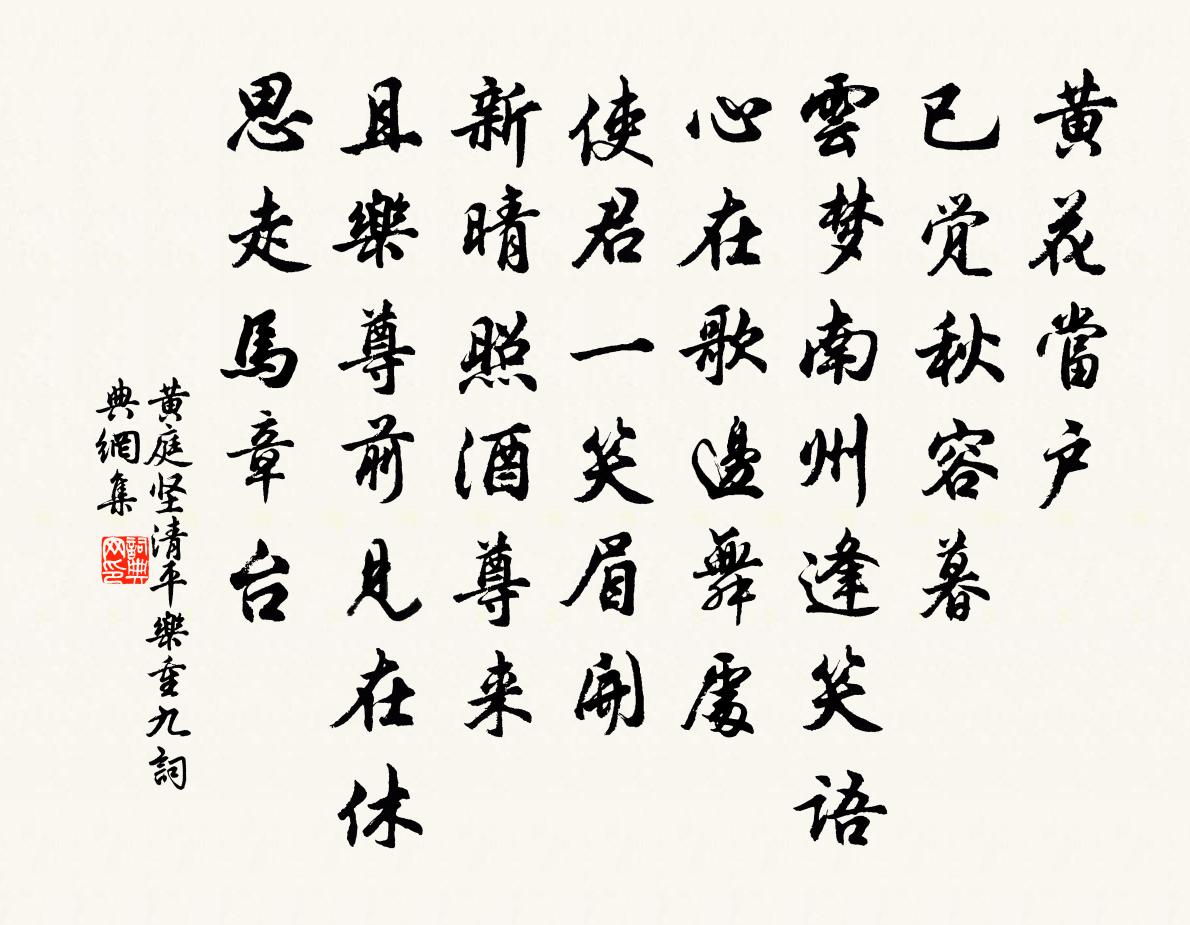 黄花當户
已觉秋容暮
雲梦南州逢笑語
心在歌邊舞處
使君一笑眉開
新晴照酒尊来
且樂尊前見在休
思走馬章台
黄庭坚清平樂重九詞
典網集
詞典
网印